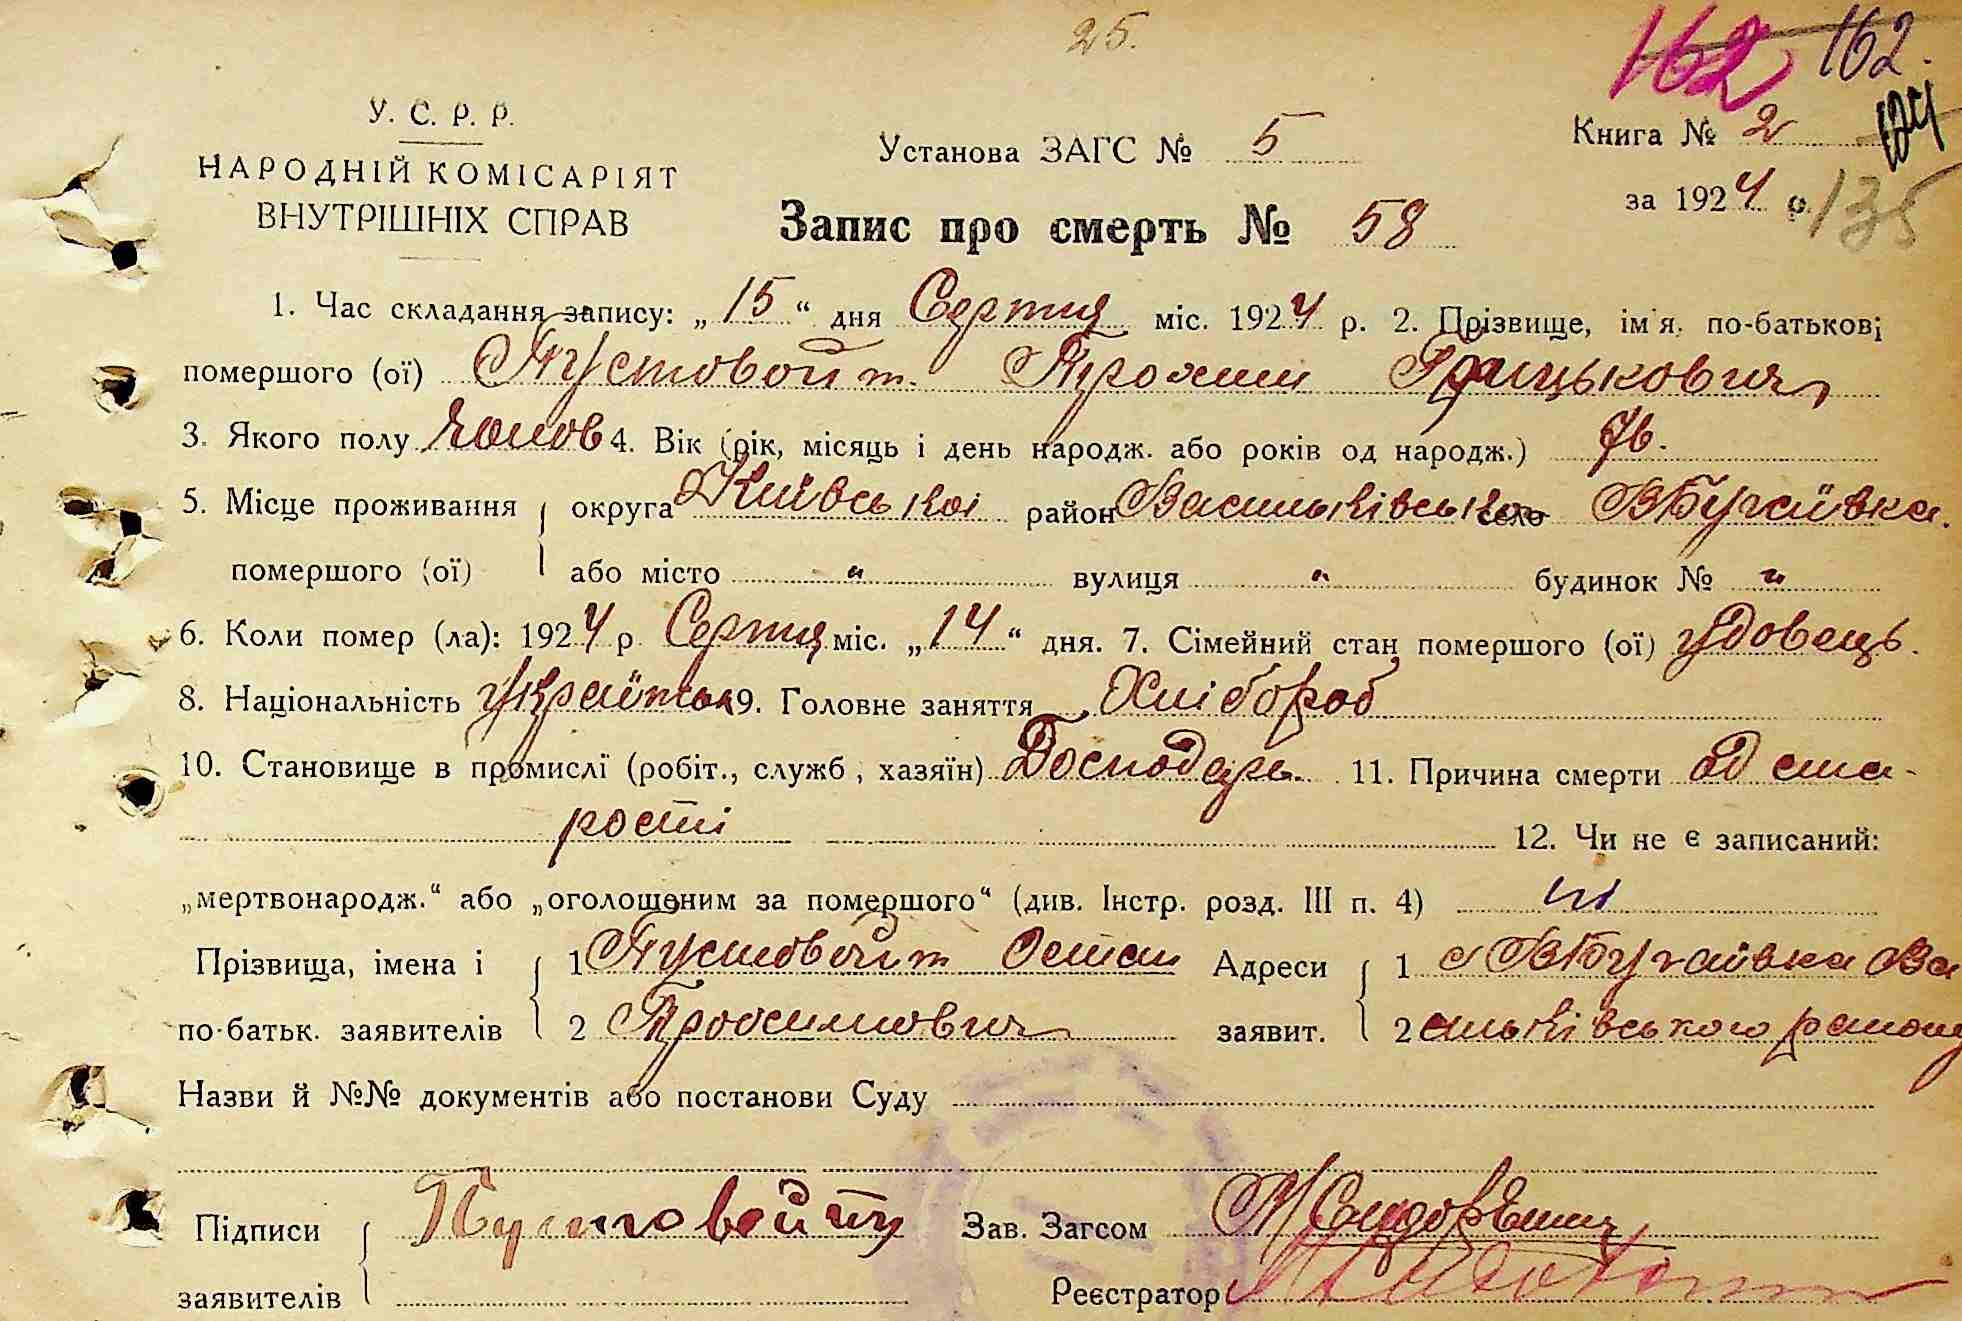 25.
162 162.
У. С. Р. Р.
НАРОДНІЙ КОМІСАРІЯТ
ВНУТРІШНІХ СПРАВ
Установа ЗАГС № 5
Книга № 2
за 1924 р. 135
Запис про смерть № 58
1. Час складання запису: „15“ дня Серпня міс. 1924 р. 2. Прізвище, ім'я, по-батькові
помершого (ої) Пустовойт Трохим Грицькович
3. Якого полу чолов 4. Вік (рік, місяць і день народж. або років од народж.) 76.
5. Місце проживання { округа Київської район Васильківсько село ВБугаївка.
помершого (ої) або місто " вулиця " будинок № "
6. Коли помер (ла): 1924 р Серпня міс. „14“ дня. 7. Сімейний стан помершого (ої) удовець.
8. Національність 9. Головне заняття Хлібороб
10. Становище в промислі (робіт., служб, хазяїн) Господарь. 11. Причина смерти од ста-
рості 12. Чи не є записаний:
„мертвонародж.“ або „оголошеним за помершого“ (див. Інстр. розд. III п. 4) ні
Прізвища, імена і { 1 Пустовойт Остап Адреси { 1 с ВБугаївка Ва
по-батьк. заявителів 2 Трохимович заявит. 2 сильківського району
Назви й №№ документів або постанови Суду
Підписи { Пустовойт Зав. Загсом
заявителів Реєстратор